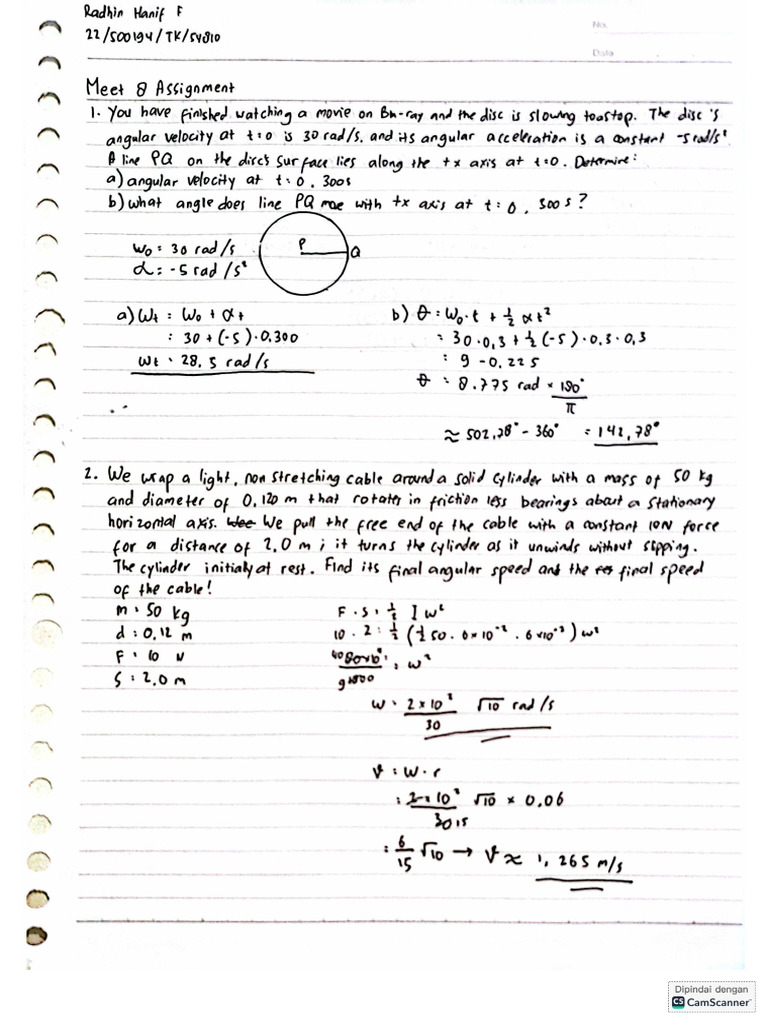 Radhin Hanif F
22/500194/TK/54810
No.
Date
Meet 8 Assignment
1. You have finished watching a movie on Blu-ray and the disc is slowing to a stop. The disc's
angular velocity at t=0 is 30 rad/s. and its angular acceleration is a constant -5 rad/s²
A line PQ on the disc's surface lies along the +x axis at t=0. Determine:
a) angular velocity at t=0.300s
b) what angle does line PQ make with +x axis at t=0.300s?
ω₀ = 30 rad/s
α = -5 rad/s²
P
Q
a) ωt = ω₀ + αt
= 30 + (-5)·0.300
ωt = 28.5 rad/s
b) θ = ω₀·t + 1/2 αt²
= 30·0,3 + 1/2 (-5)·0.3·0,3
= 9 - 0.225
θ = 8.775 rad × 180°/π
≈ 502,78° - 360° = 142,78°
2. We wrap a light, non stretching cable around a solid cylinder with a mass of 50 kg
and diameter of 0,120 m that rotates in friction less bearings about a stationary
horizontal axis. We pull the free end of the cable with a constant 10N force
for a distance of 2,0 m ; it turns the cylinder as it unwinds without slipping.
The cylinder initially at rest. Find its final angular speed and the final speed
of the cable!
m = 50 kg
d = 0,12 m
F = 10 N
S = 2,0 m
F · S = 1/2 I ω²
10 . 2 = 1/2 (1/2 50 . 6×10⁻² . 6×10⁻²) ω²
= ω²
ω = 2×10²/30 √10 rad/s
v = ω·r
= 2×10²/30 15 √10 × 0,06
= 6/15 √10 → v ≈ 1,265 m/s
Dipindai dengan
CS CamScanner